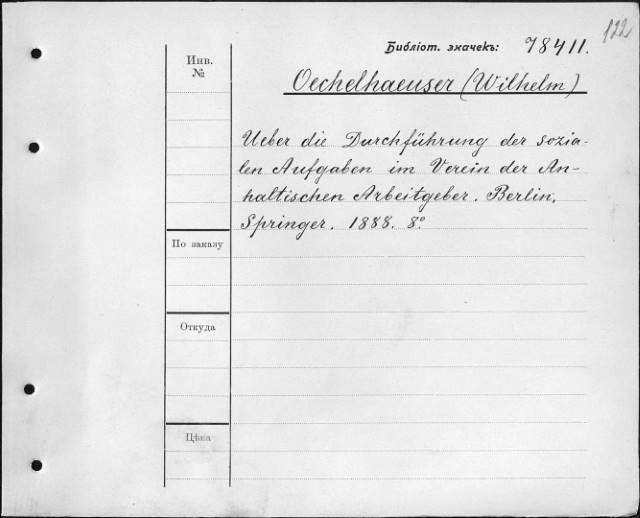 122
Библіот. значекъ: 78411.
Инв.
№
Oechelhaeuser (Wilhelm)
Ueber die Durchführung der sozia-
len Aufgaben im Verein der An-
haltischen Arbeitgeber. Berlin,
Springer. 1888. 8°
По заказу
Откуда
Цѣна